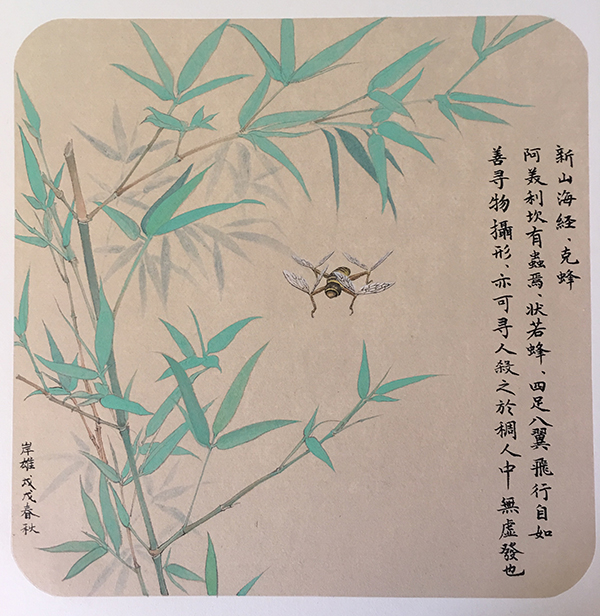 新山海経、克蜂
阿美利坎有蟲焉、状若蜂、四足八翼飛行自如
善寻物攝形、亦可寻人殺之於稠人中無虚發也
岸雄戊戌春秋